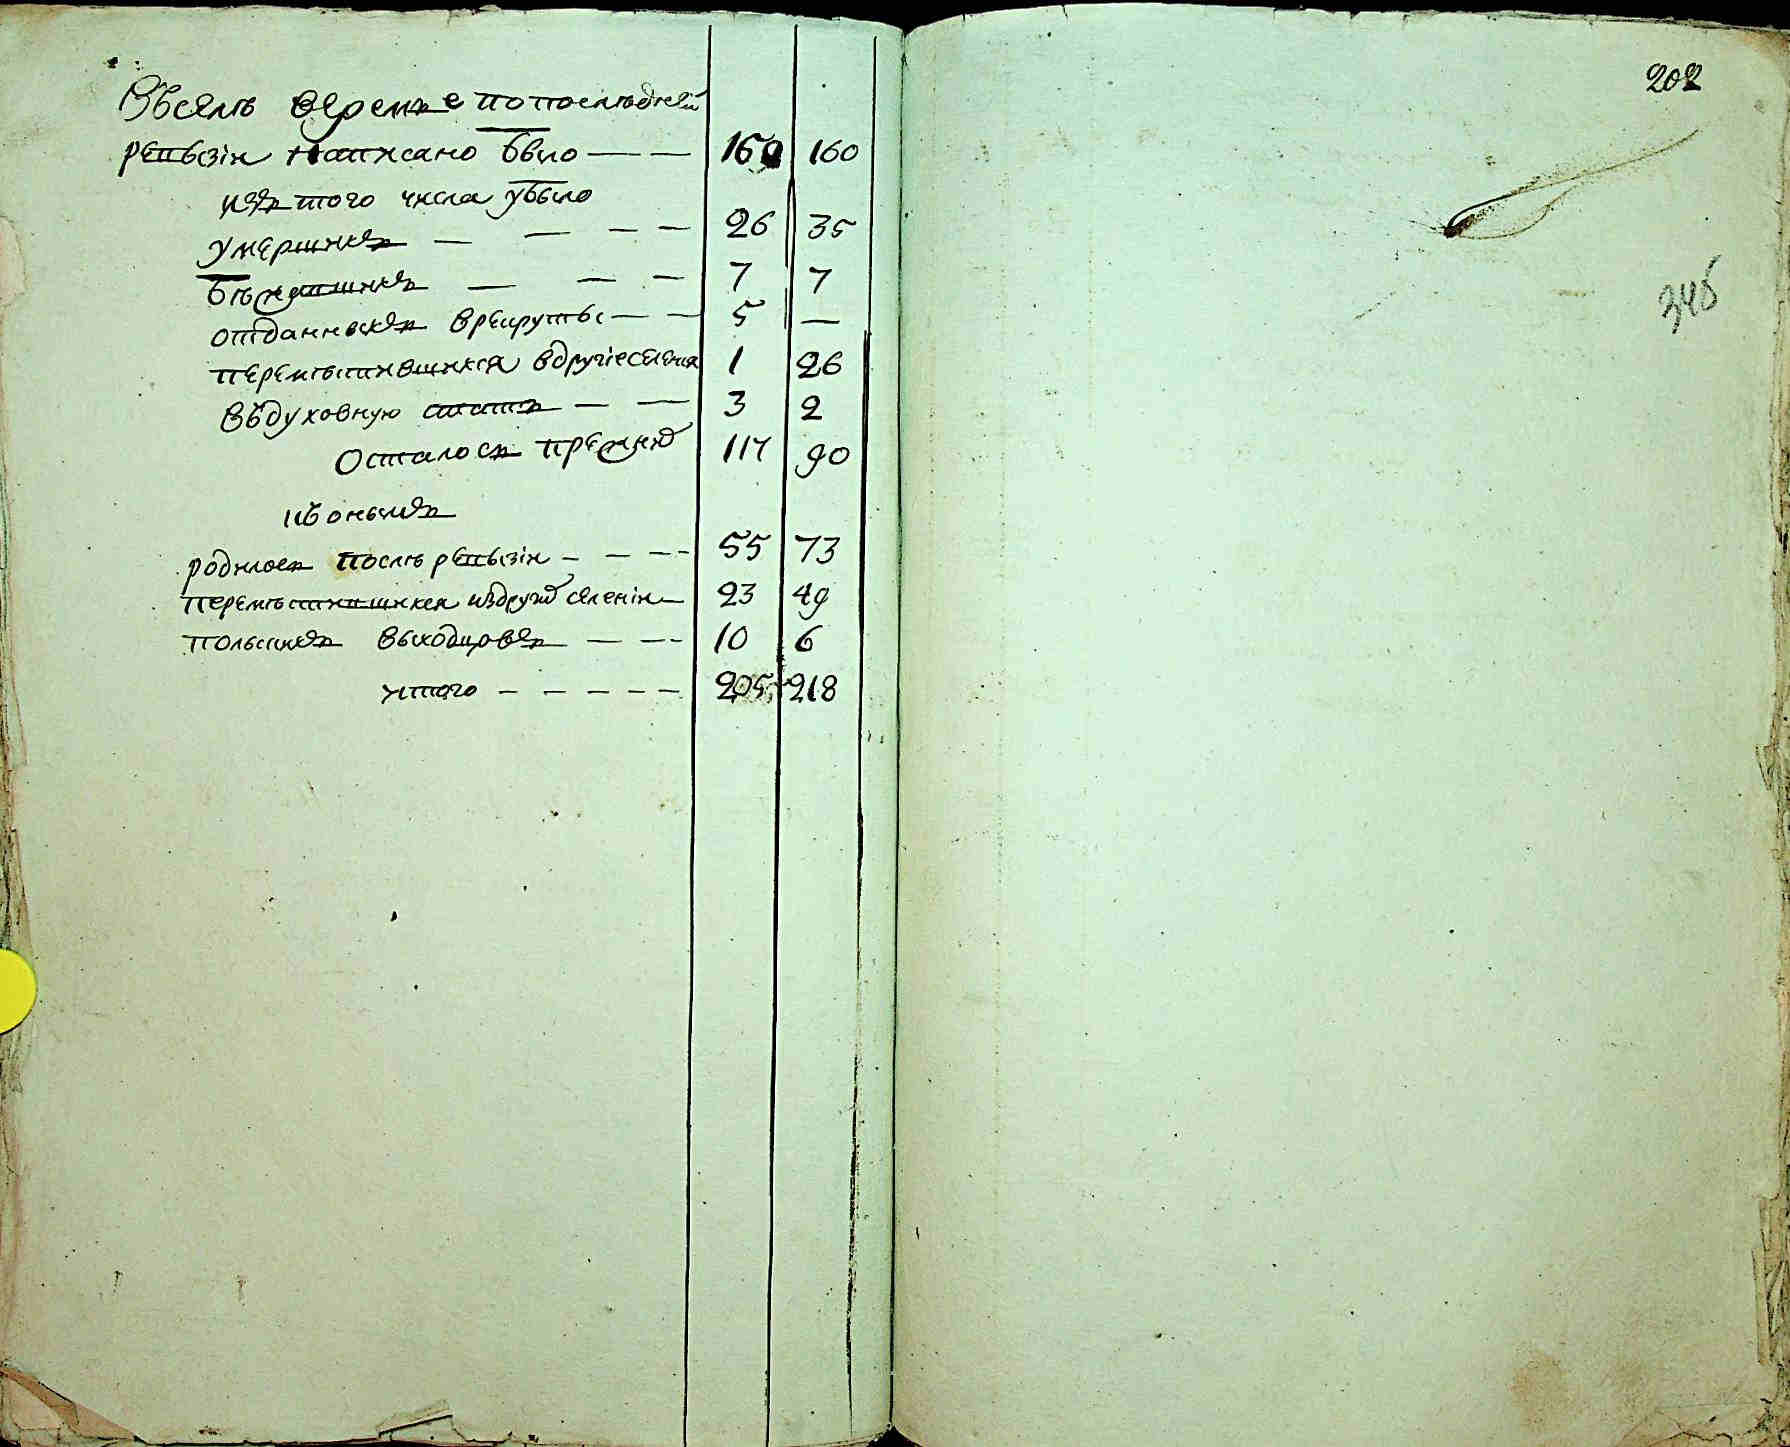 Въсемъ веремье попоследней
репьизiи написано было — — 159 160
изь того числа убыло
умерших — — — — 26 35
бежавших — — — 7 7
отданных врекруты — — 5 —
переместившихся вдругiеселения 1 26
въдуховную стать — — 3 2
Осталось прежнихъ 117 90
родилось после репьизiи — — — 55 73
переместившихся издругихъ селенiи — 23 49
польских выходцовъ — — — 10 6
итого — — — — — 205 218
202
346